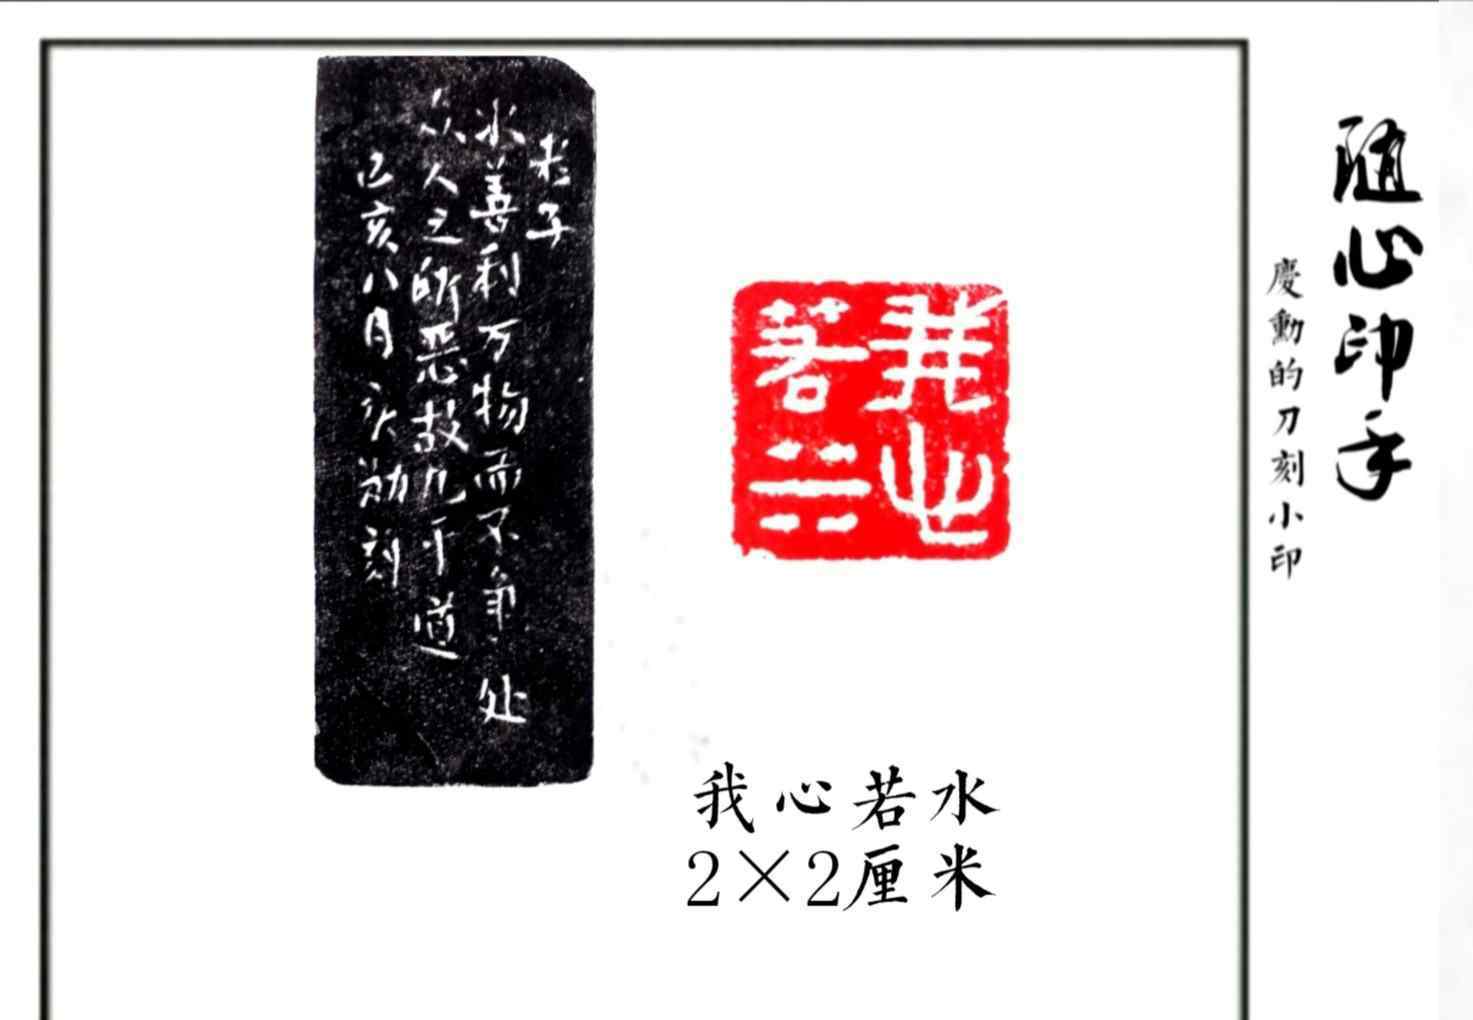 随心印手
慶勳的刀刻小印
老子
水善利万物而不争处
众人之所恶故几于道
己亥八月庆勋刻
我心若水
我心若水
2×2厘米